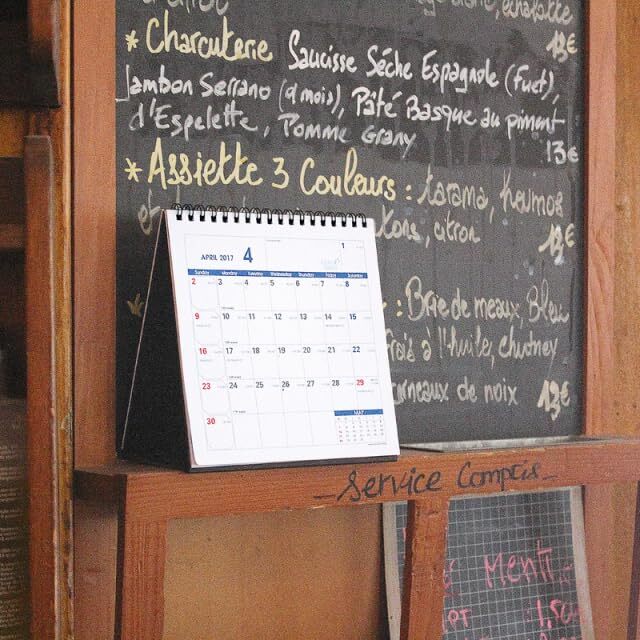 échalotte
13€
* Charcuterie Saucisse Sêche Espagnole (Fuet),
Jambon Serrano (9 mois), Pâté Basque au piment
d'Espelette, Pomme Grany
13€
* Assiette 3 Couleurs : tarama, houmos
citron
13€
: Brie de meaux, Bleu
frais à l'huile, chutney
de noix
13€
APRIL 2017 4 1
Sunday Monday Tuesday Wednesday Thursday Friday Saturday
2 3 4 5 6 7 8
9 10 11 12 13 14 15
16 17 18 19 20 21 22
23 24 25 26 27 28 29
30
MAY
_ Service Compris _
Menu